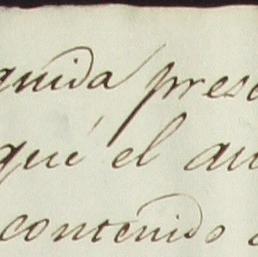 guida pres
qué el au
contenido